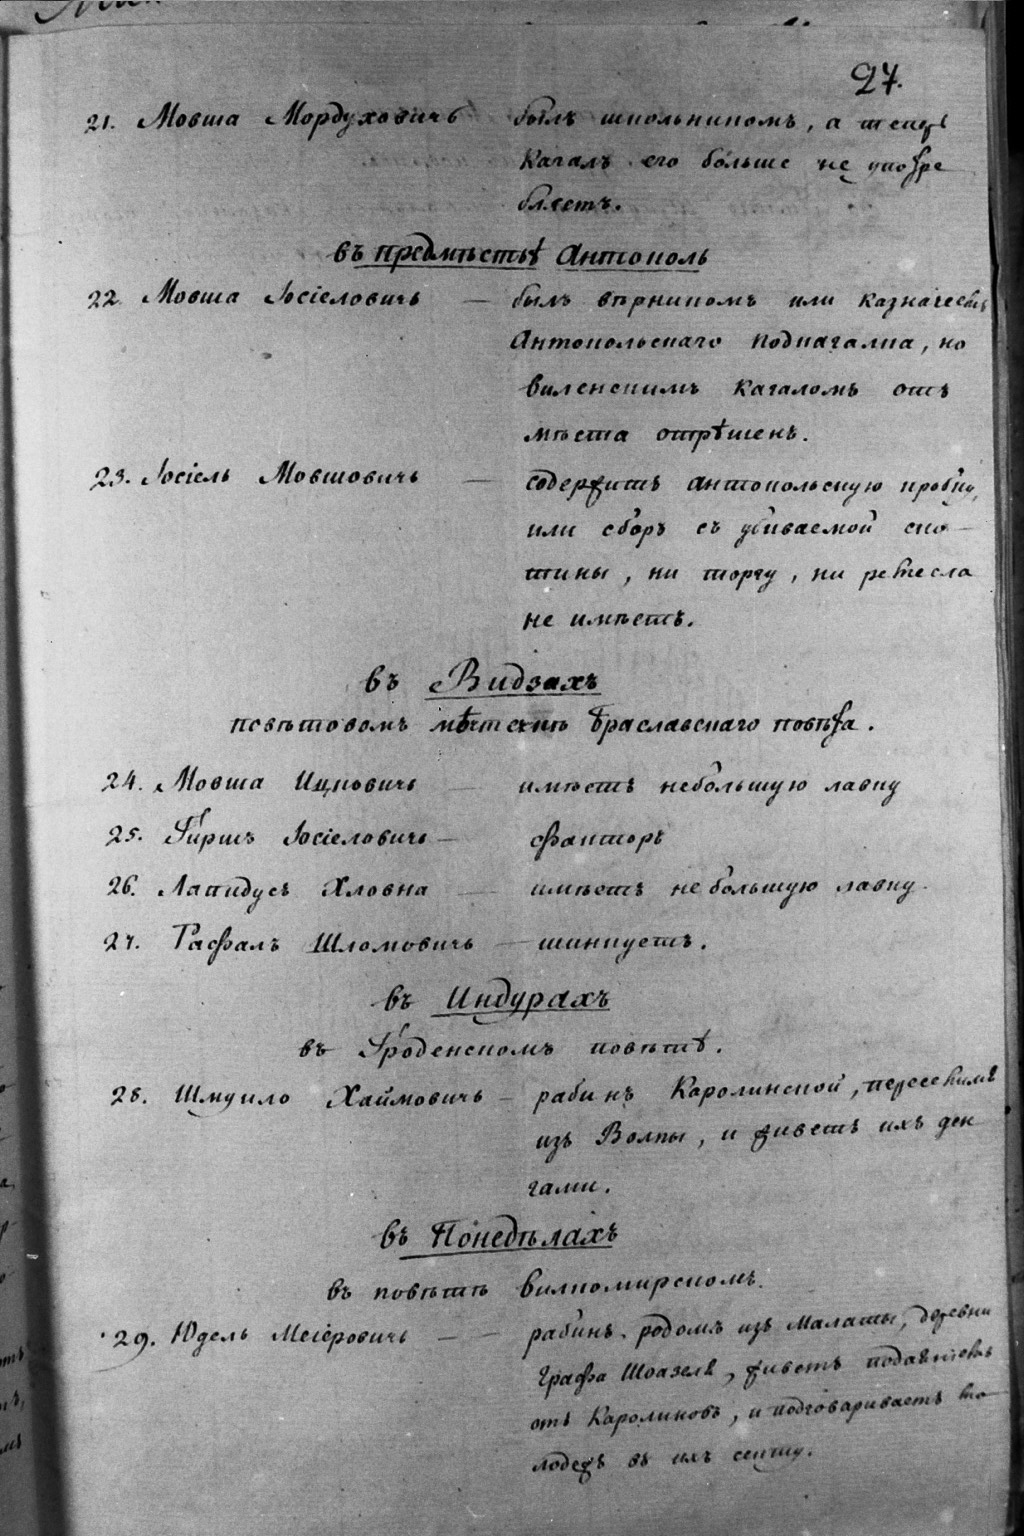 27.
21. Мовша Мордуховичъ былъ школьникомъ, а теперь
Кагалъ его больше не употре
бляетъ.
въ предмѣстьѣ Антополь
22. Мовша Іосіеловичъ — былъ вѣрникомъ или казначеемъ
Антопольскаго подкагалка, но
виленскимъ кагаломъ отъ
мѣста отрѣшенъ.
23. Іосіель Мовшовичъ — содержитъ антопольскую кробку,
или сборъ съ убиваемой ско-
тины, ни торгу, ни ремесла
не имѣетъ.
въ Видзахъ
повѣтовомъ мѣстечкѣ Браславскаго повѣта.
24. Мовша Ицковичъ — имѣетъ небольшую лавку
25. Гиршъ Іосіеловичъ — факторъ
26. Лапидусъ Хловна — имѣетъ небольшую лавку.
27. Рафалъ Шломовичъ — шинкуетъ.
въ Индурахъ
въ Гроденскомъ повѣтѣ.
28. Шмуило Хаймовичъ — рабинъ Каролинской,
изъ Волпы, и живетъ ихъ ден
гами.
въ Понедѣлахъ
въ повѣтѣ вилкомирскомъ.
29. Юдель Меіеровичъ — — рабинъ родомъ изъ Малаты, деревни
Графа Шоазеля, живетъ подаяніемъ
отъ Каролиновъ, и подговариваетъ мо
лодежъ въ ихъ секту.